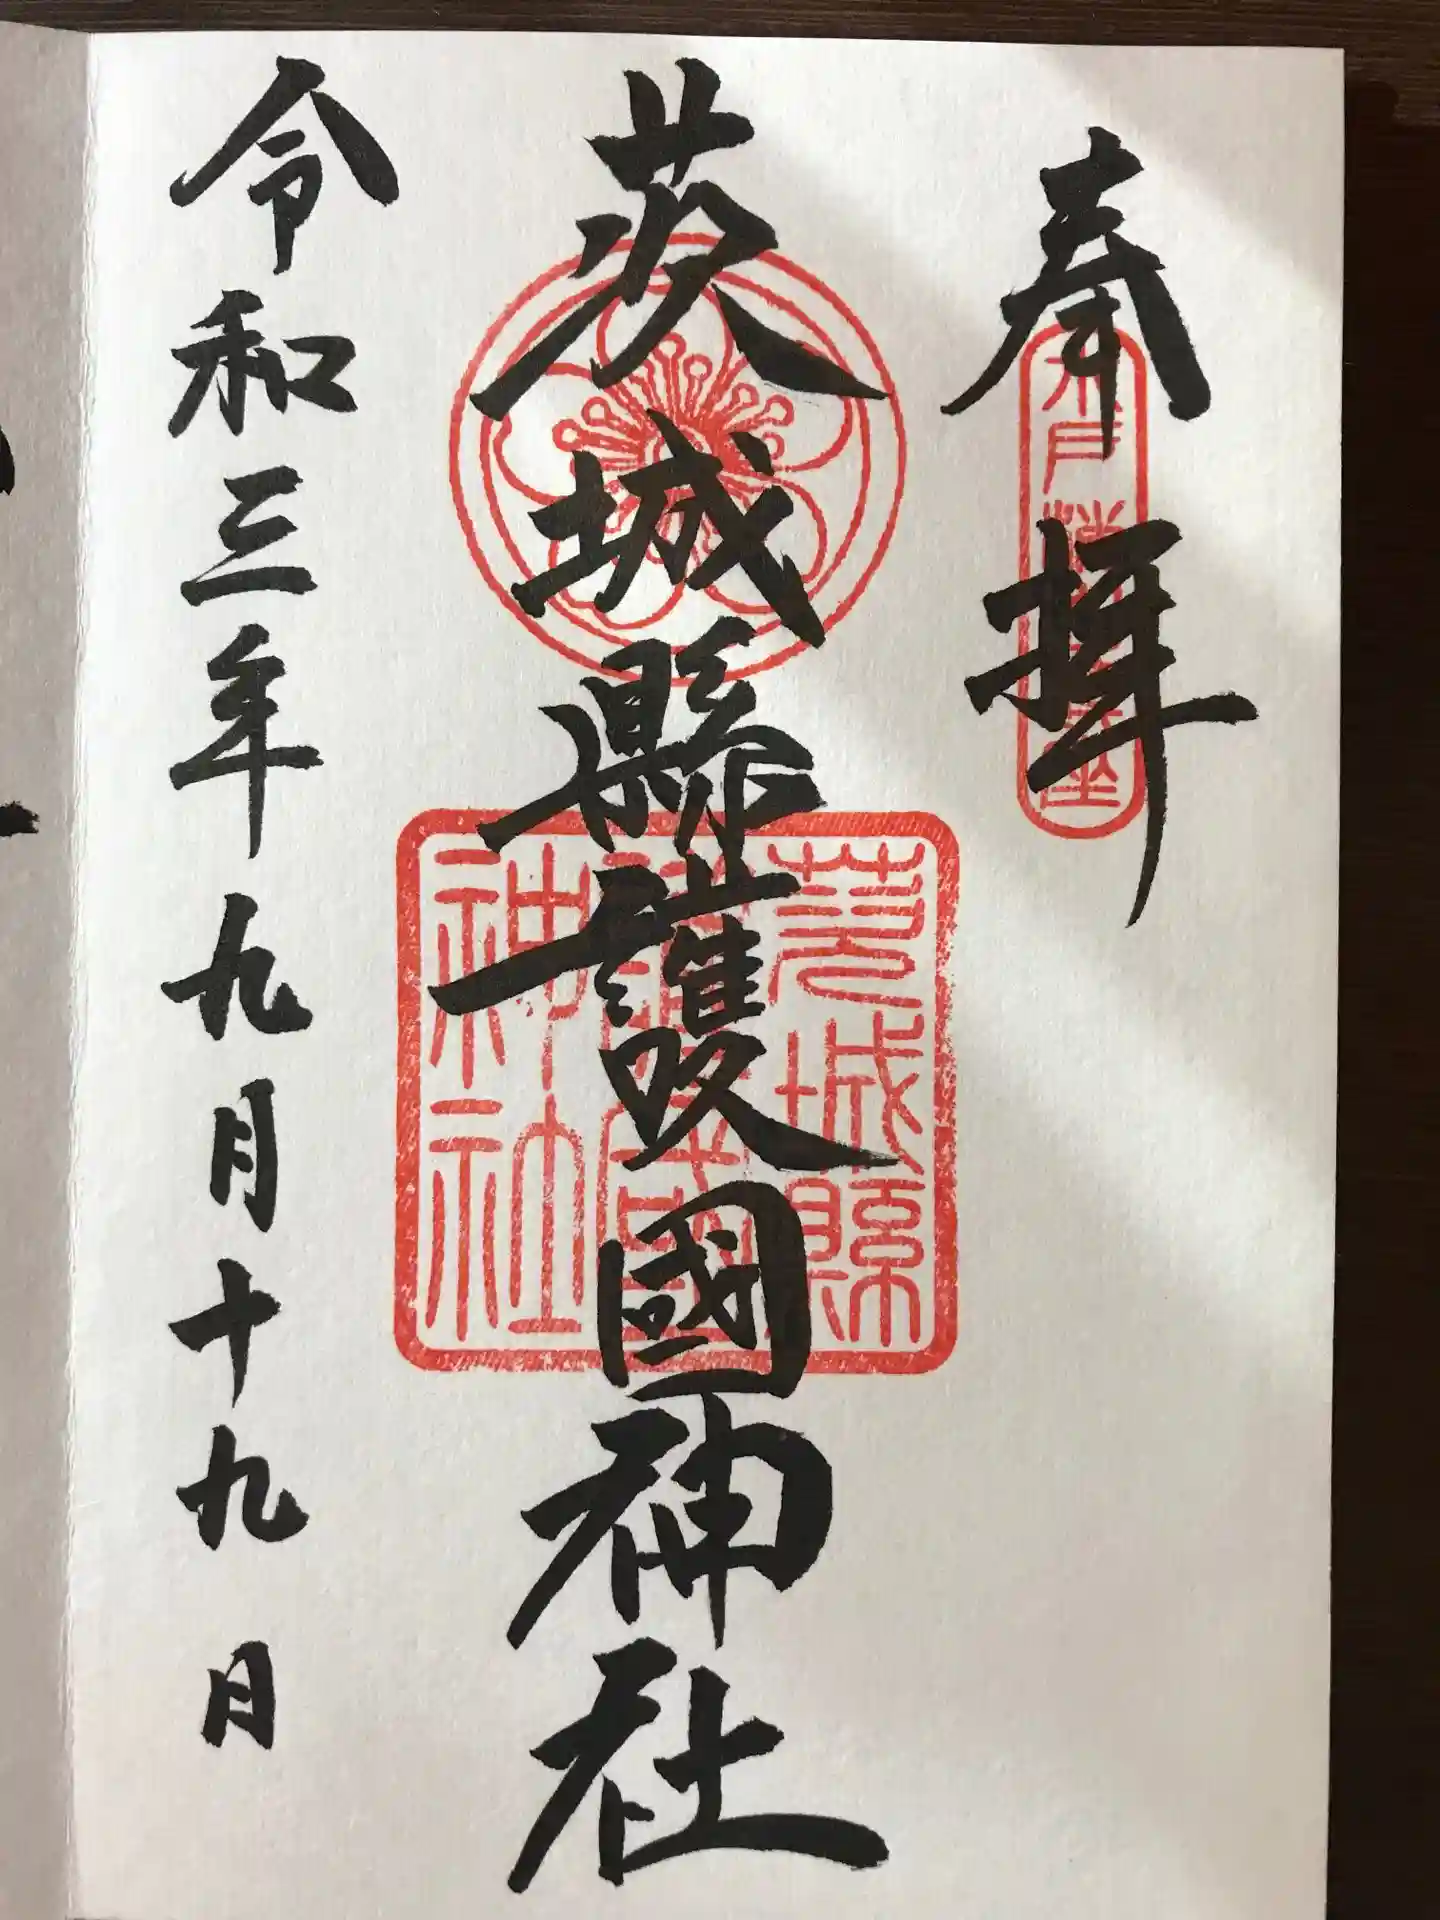 奉拝
茨城縣護國神社
茨城縣
護國
神社
令和三年九月十九日